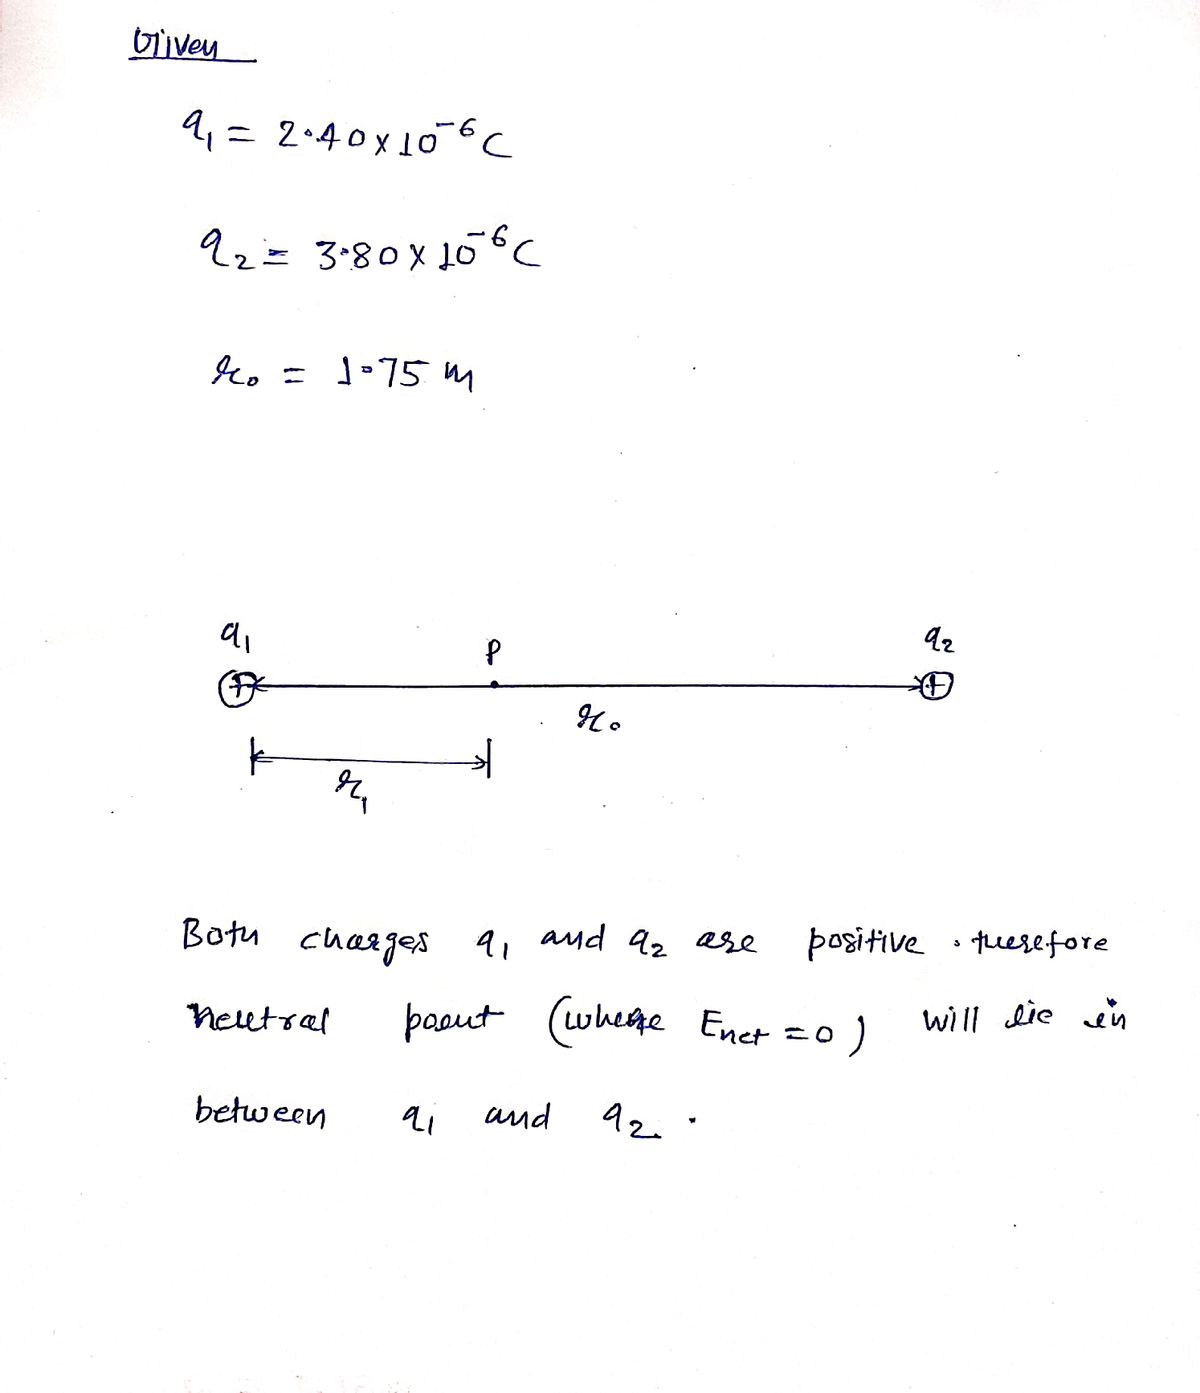 Given
q₁ = 2.40 x 10⁻⁶ C
q₂ = 3.80 x 10⁻⁶ C
r₀ = 1.75 m
q₁ P q₂
+ +
r₀
r₁
Both charges q₁ and q₂ are positive . therefore
neutral point (where Enet = 0) will lie in
between q₁ and q₂ .